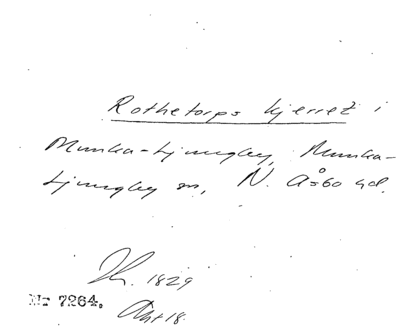 Rothetorps kjerret i
Munka-Ljungby, Munka-
Ljungby sn, N. Åsbo hd.
1829
Nr 7264. Akt 18.